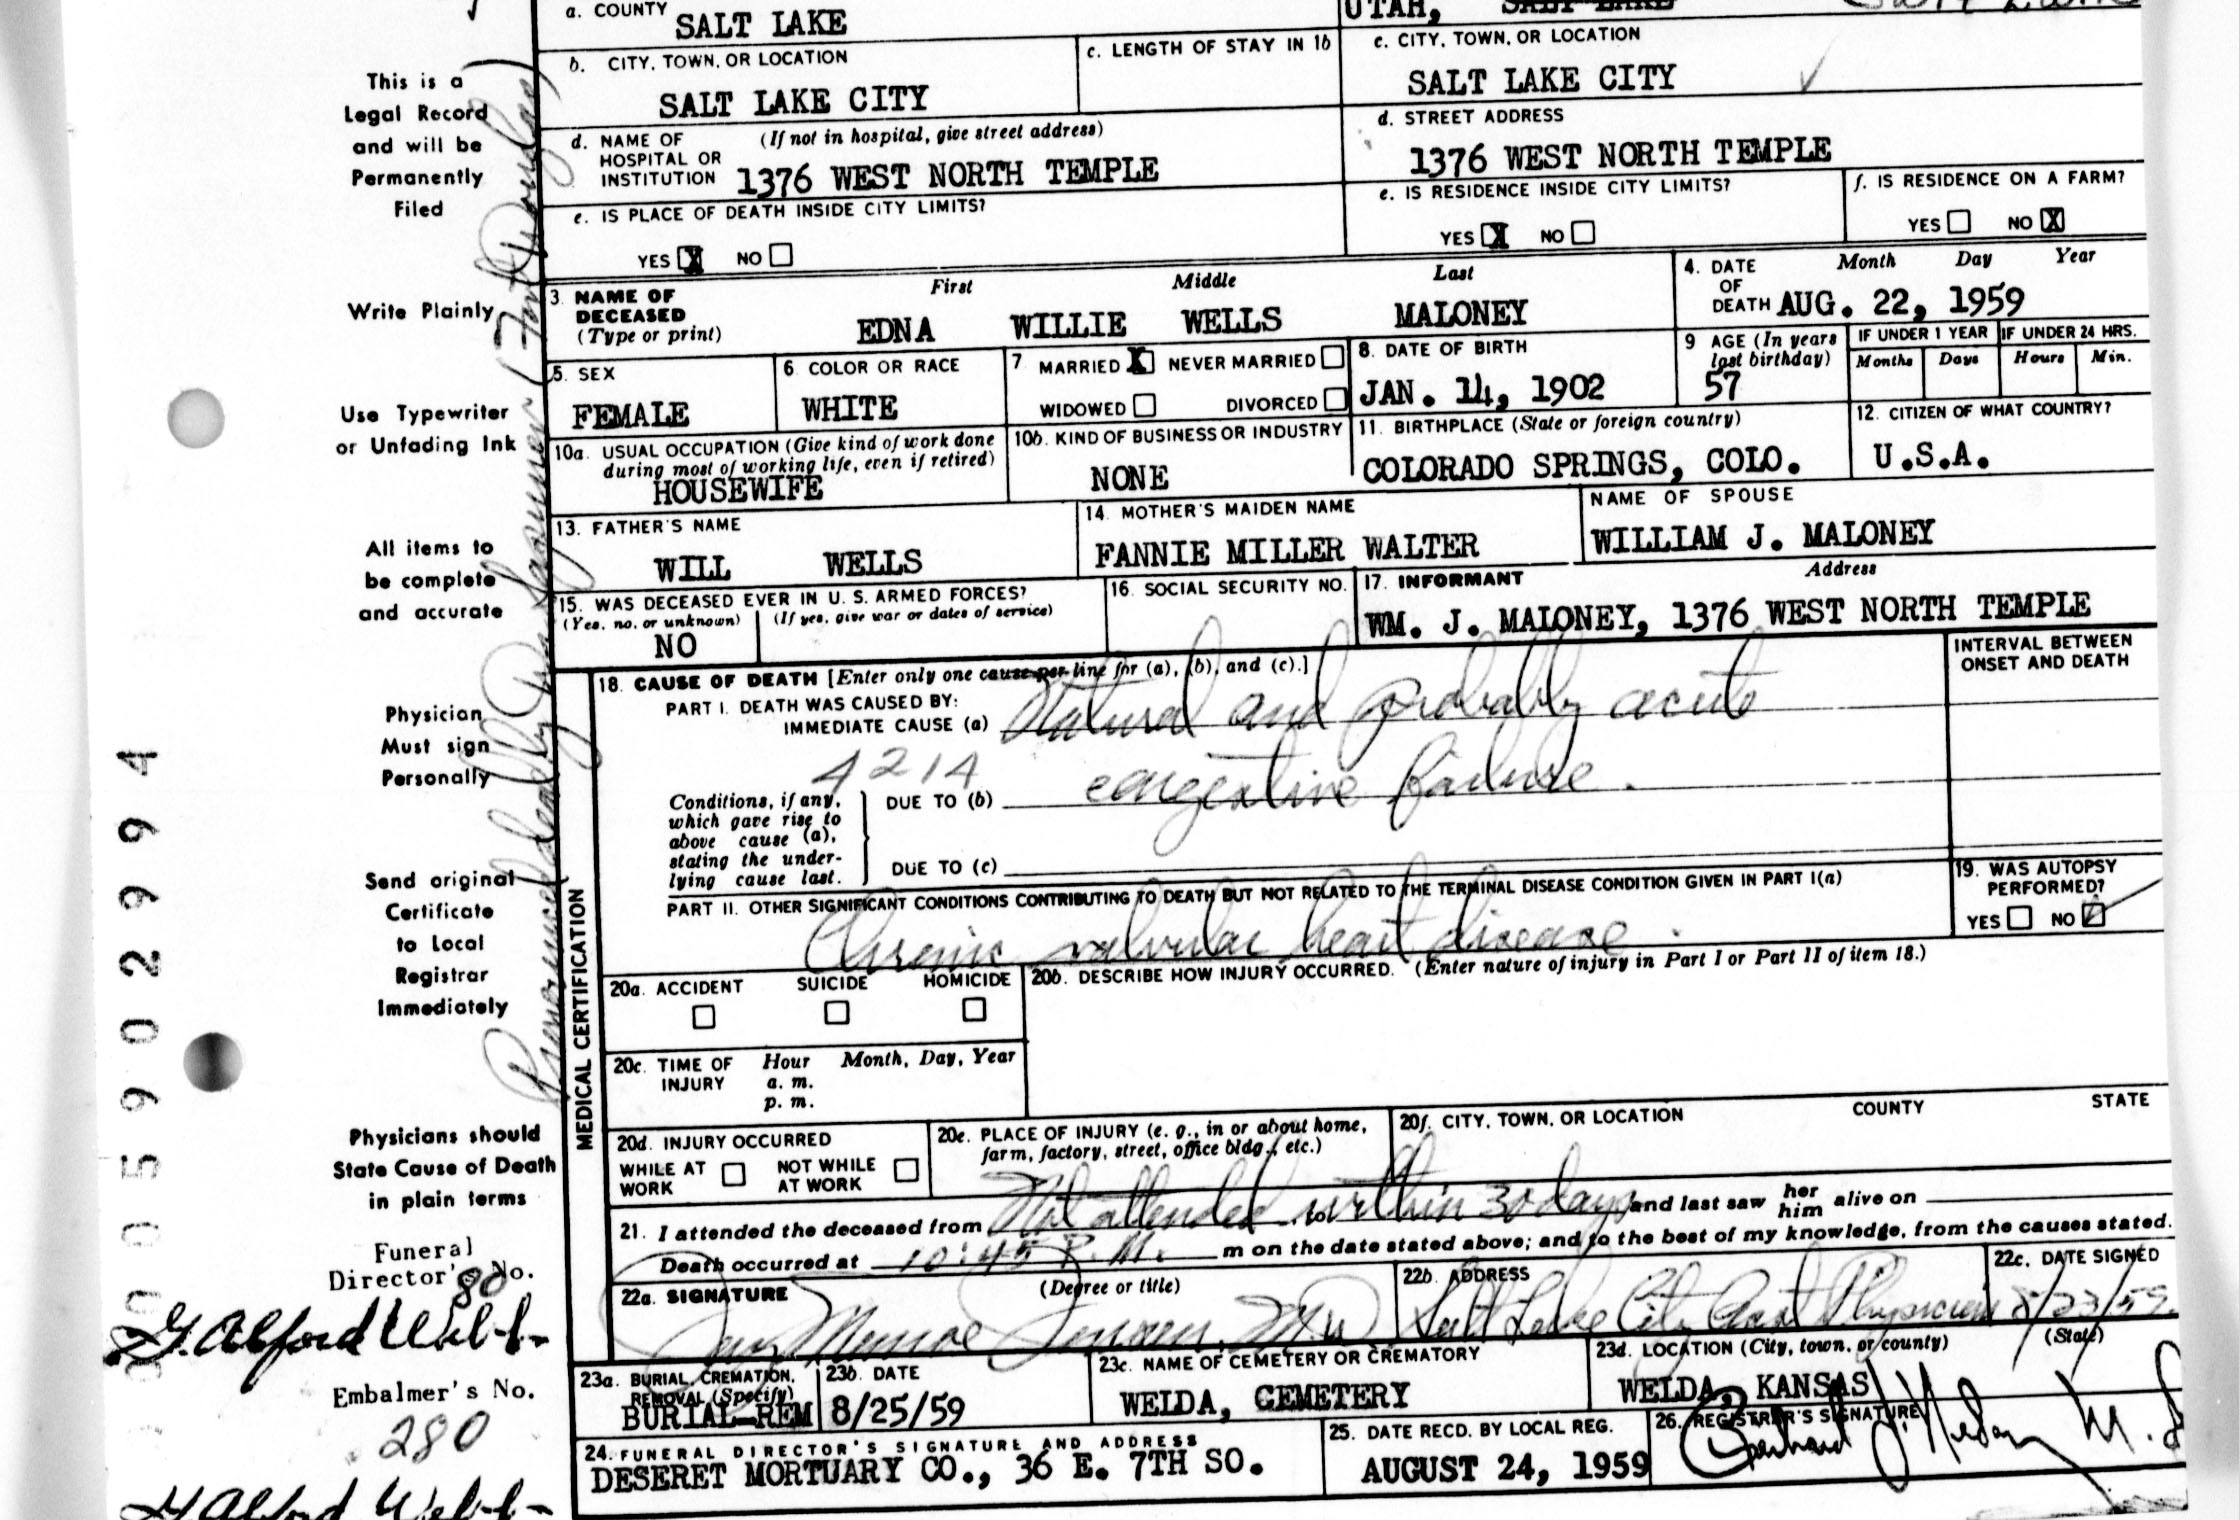 a. COUNTY
SALT LAKE
UTAH, SALT LAKE
b. CITY, TOWN, OR LOCATION
c. LENGTH OF STAY IN 1b
c. CITY, TOWN, OR LOCATION
SALT LAKE CITY
SALT LAKE CITY
d. NAME OF HOSPITAL OR INSTITUTION
(If not in hospital, give street address)
1376 WEST NORTH TEMPLE
d. STREET ADDRESS
1376 WEST NORTH TEMPLE
e. IS PLACE OF DEATH INSIDE CITY LIMITS?
YES X NO
e. IS RESIDENCE INSIDE CITY LIMITS?
YES X NO
f. IS RESIDENCE ON A FARM?
YES NO X
3. NAME OF DECEASED
(Type or print)
First Middle Last
EDNA WILLIE WELLS MALONEY
4. DATE OF DEATH
Month Day Year
AUG. 22, 1959
5. SEX
FEMALE
6. COLOR OR RACE
WHITE
7 MARRIED X NEVER MARRIED
WIDOWED DIVORCED
8. DATE OF BIRTH
JAN. 14, 1902
9 AGE (In years last birthday)
57
IF UNDER 1 YEAR IF UNDER 24 HRS.
Months Days Hours Min.
10a. USUAL OCCUPATION (Give kind of work done
during most of working life, even if retired)
HOUSEWIFE
10b. KIND OF BUSINESS OR INDUSTRY
NONE
11. BIRTHPLACE (State or foreign country)
COLORADO SPRINGS, COLO.
12. CITIZEN OF WHAT COUNTRY?
U.S.A.
13. FATHER'S NAME
WILL WELLS
14. MOTHER'S MAIDEN NAME
FANNIE MILLER WALTER
NAME OF SPOUSE
WILLIAM J. MALONEY
15. WAS DECEASED EVER IN U. S. ARMED FORCES?
(Yes, no, or unknown) (If yes, give war or dates of service)
NO
16. SOCIAL SECURITY NO.
17. INFORMANT Address
WM. J. MALONEY, 1376 WEST NORTH TEMPLE
MEDICAL CERTIFICATION
18. CAUSE OF DEATH [Enter only one cause per line for (a), (b), and (c).]
INTERVAL BETWEEN
ONSET AND DEATH
PART I. DEATH WAS CAUSED BY:
IMMEDIATE CAUSE (a) Natural and probably acute
4214
congestive failure.
Conditions, if any,
which gave rise to
above cause (a),
stating the under-
lying cause last.
DUE TO (b)
DUE TO (c)
PART II. OTHER SIGNIFICANT CONDITIONS CONTRIBUTING TO DEATH BUT NOT RELATED TO THE TERMINAL DISEASE CONDITION GIVEN IN PART I(a)
Chronic valvular heart disease.
19. WAS AUTOPSY
PERFORMED?
YES NO
20a. ACCIDENT SUICIDE HOMICIDE
20b. DESCRIBE HOW INJURY OCCURRED. (Enter nature of injury in Part I or Part II of item 18.)
20c. TIME OF INJURY
Hour Month, Day, Year
a. m.
p. m.
20d. INJURY OCCURRED
WHILE AT WORK NOT WHILE AT WORK
20e. PLACE OF INJURY (e. g., in or about home,
farm, factory, street, office bldg., etc.)
20f. CITY, TOWN, OR LOCATION COUNTY STATE
21. I attended the deceased from Not attended to within 30 days and last saw her him alive on
Death occurred at 10:45 P.M. m on the date stated above; and to the best of my knowledge, from the causes stated.
22a. SIGNATURE (Degree or title)
22b. ADDRESS
Salt Lake City Physician
22c. DATE SIGNED
8/23/59
23a. BURIAL, CREMATION,
REMOVAL (Specify)
BURIAL-REM
23b. DATE
8/25/59
23c. NAME OF CEMETERY OR CREMATORY
WELDA, CEMETERY
23d. LOCATION (City, town, or county) (State)
WELDA, KANSAS
24. FUNERAL DIRECTOR'S SIGNATURE AND ADDRESS
DESERET MORTUARY CO., 36 E. 7TH SO.
25. DATE RECD. BY LOCAL REG.
AUGUST 24, 1959
26. REGISTRAR'S SIGNATURE
This is a
Legal Record
and will be
Permanently
Filed
Write Plainly
Use Typewriter
or Unfading Ink
All items to
be complete
and accurate
Physician
Must sign
Personally
Send original
Certificate
to Local
Registrar
Immediately
Physicians should
State Cause of Death
in plain terms
Funeral
Director's No.
80
Embalmer's No.
280